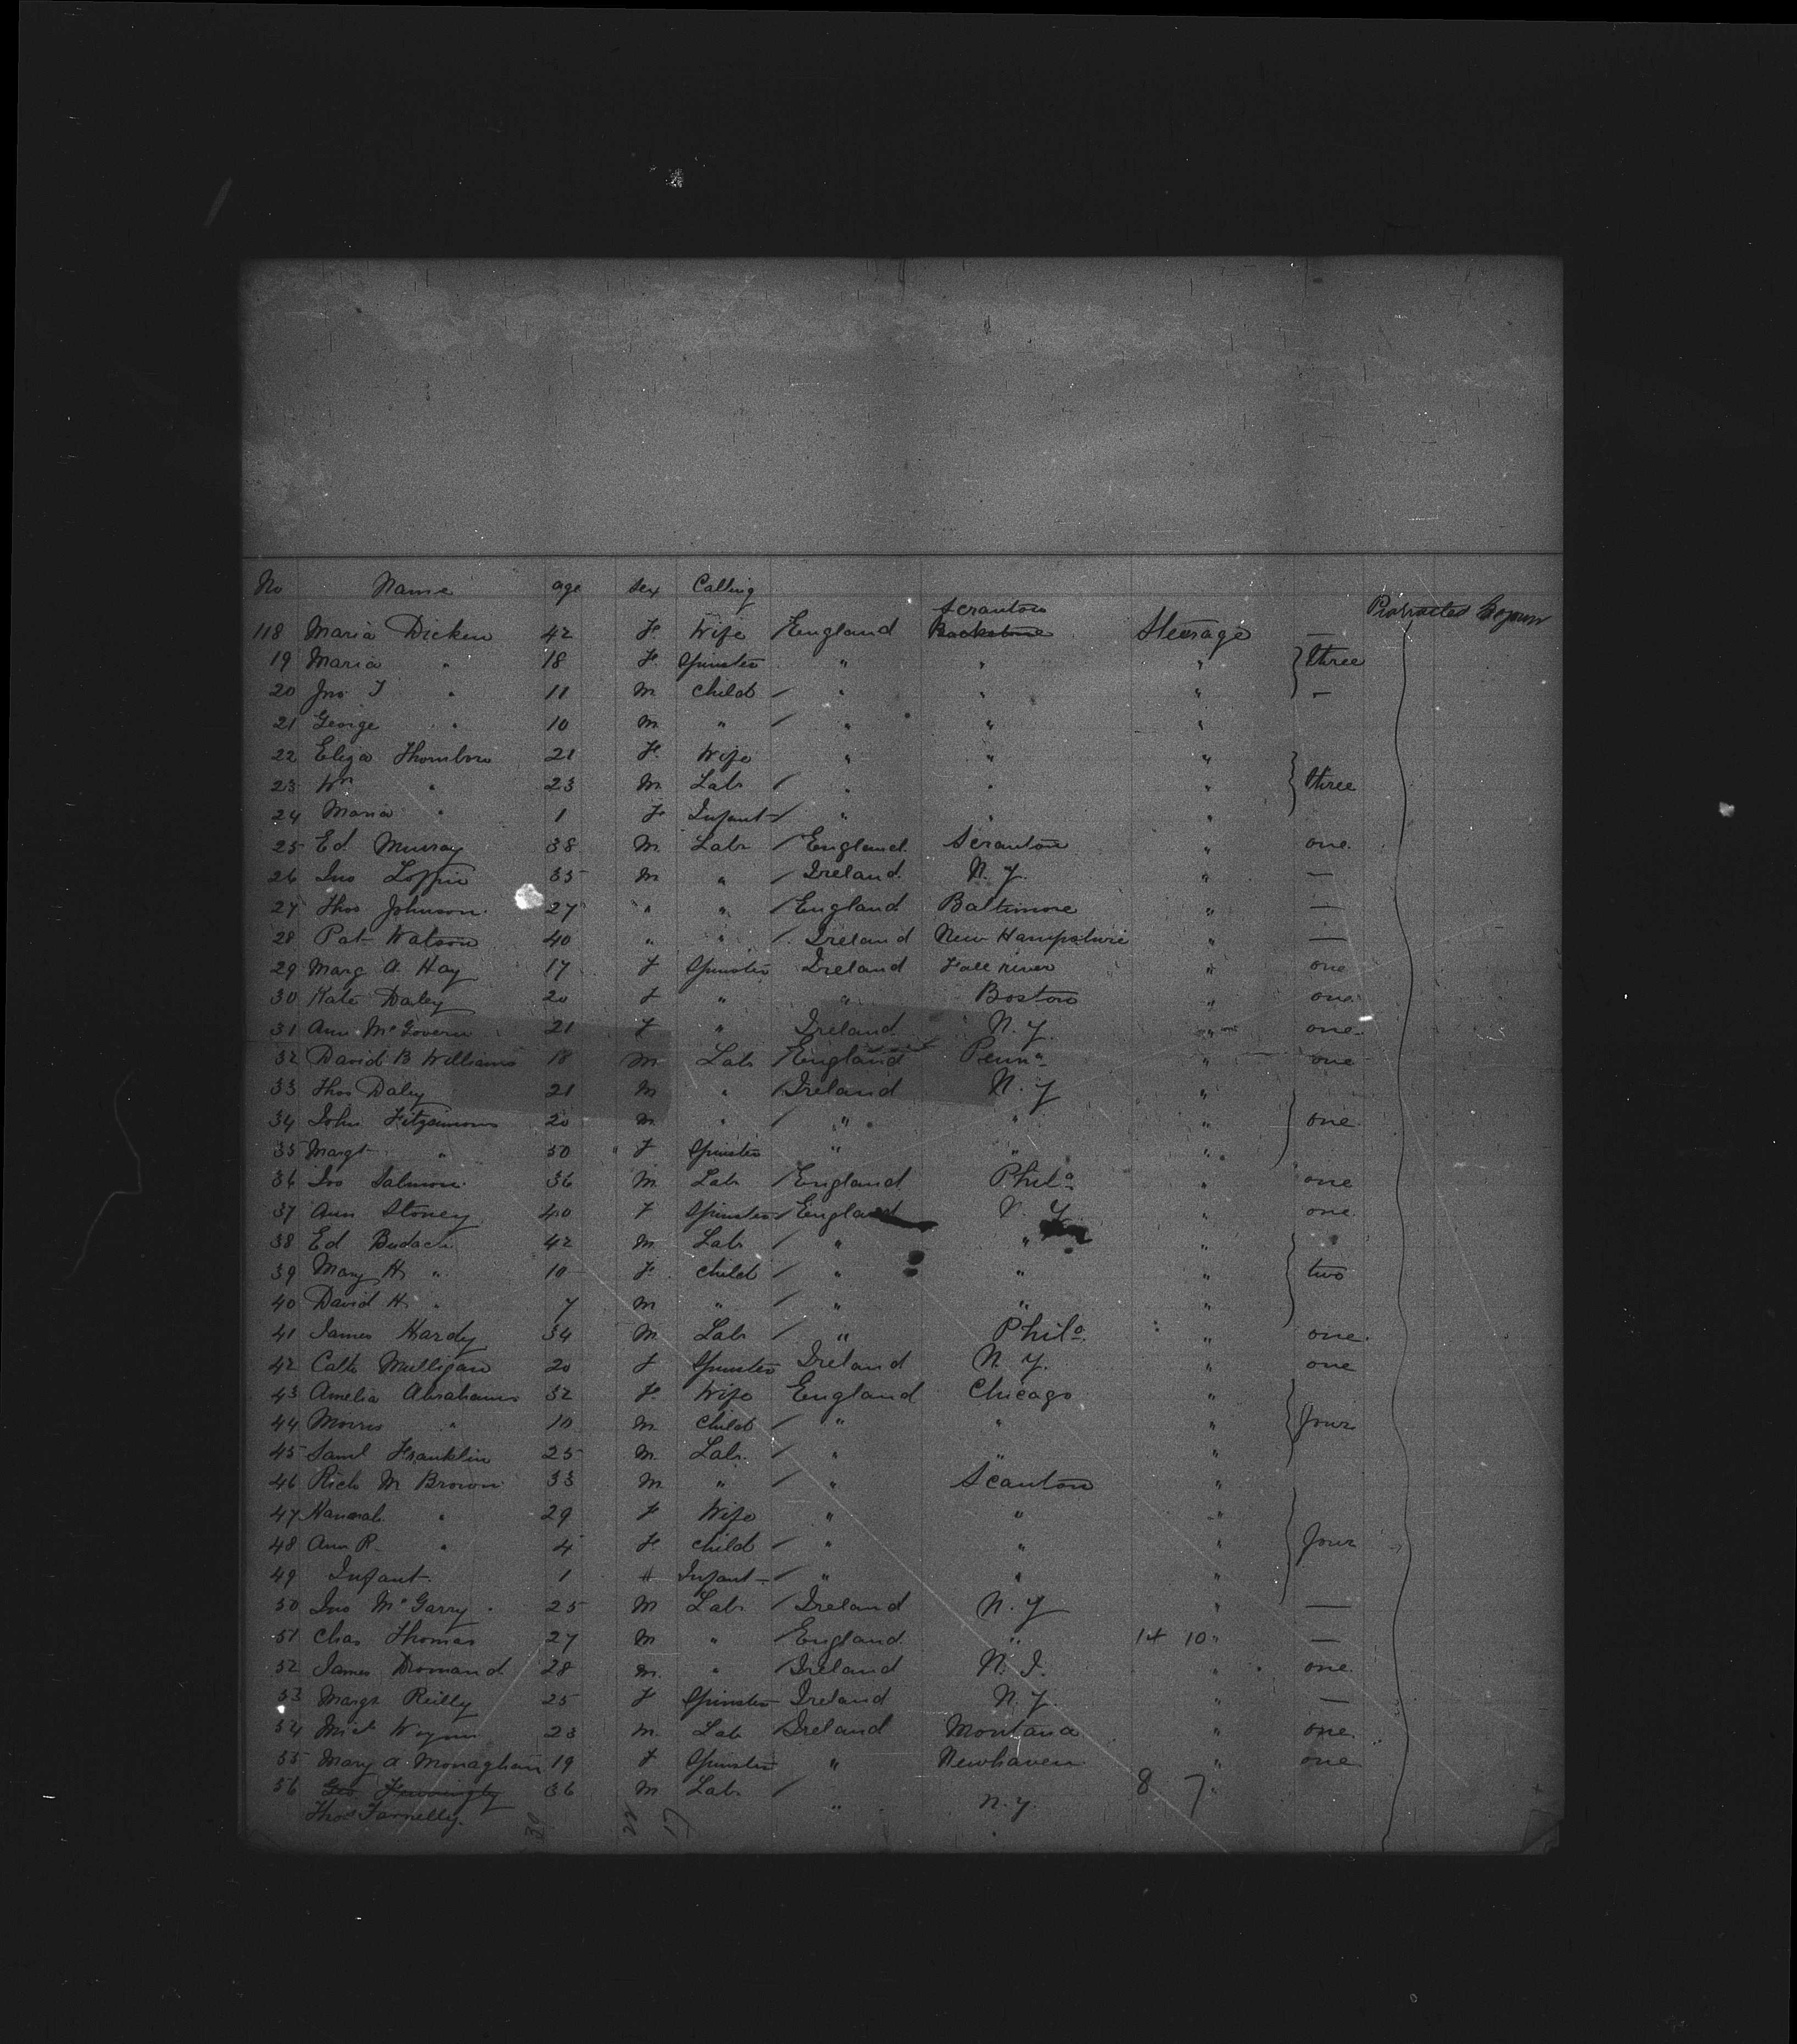 No Name age Sex Calling
Protracted Sojourn
Scranton
118 Maria Dicken 42 F Wife / England Steerage —
19 Maria " 18 F Spinster " " " three
20 Jno T " 11 M Child / " " " —
21 George " 10 M " / " " "
22 Eliza Thornboro 21 F. Wife " " "
23 Wm " 23 M Labr / " " " three
24 Maria " 1 F Infant / " " "
25 Ed Murray 38 M Labr / England Scranton " one
26 Jno Loffin 35 M " / Ireland N.Y. " —
27 Thos Johnson 27 " " / England Baltimore " —
28 Pat Watson 40 " " / Ireland New Hampshire " —
29 Marg A. Hay 17 F Spinster Ireland Fall river " one
30 Kate Daley 20 F " " Boston " one
31 Ann McGovern 21 F " Ireland N.Y. " one
32 David B Williams 18 M Labr / England Penna " one
33 Thos Daley 21 M " / Ireland N.Y "
34 John Fitzsimons 20 M " / " " " one
35 Margt " 50 " F Spinster " " "
36 Jno Salmon 36 M Labr / England Phila " one
37 Ann Stoney 40 F Spinster / England N.Y. " one
38 Ed 42 M Labr / " " "
39 Mary H " 10 F Child / " " " two
40 David H " 7 M " / " " "
41 James Hardy 34 M Labr / " Phila " one
42 Cath Mulligan 20 F Spinster Ireland N.Y. " one
43 Amelia Abrahams 32 F. Wife England Chicago "
44 Morris " 10 M Child / " " " four
45 Saml Franklin 25 M Labr. / " " "
46 Rich M Brown 33 M " / " Scanton "
47 Hannah " 29 F Wife " " "
48 Ann R " 4 F Child / " " " four
49 Infant 1 Infant / " " "
50 Jno McGarry 25 M Labr / Ireland N.Y " —
51 Chas Thomas 27 M " / England " 14 10 " —
52 James Dromand 28 M. " / Ireland N.J. " one
53 Margt Reilly 25 F Spinster Ireland N.Y. " —
54 Mick Wynn 23 M. Lab / Ireland Montana " one
55 Mary A. Monaghan 19 F Spinster " Newhaven " one
56 Geo 36 M Labr / 8 7 "
Thos Farrelly. " N.Y.